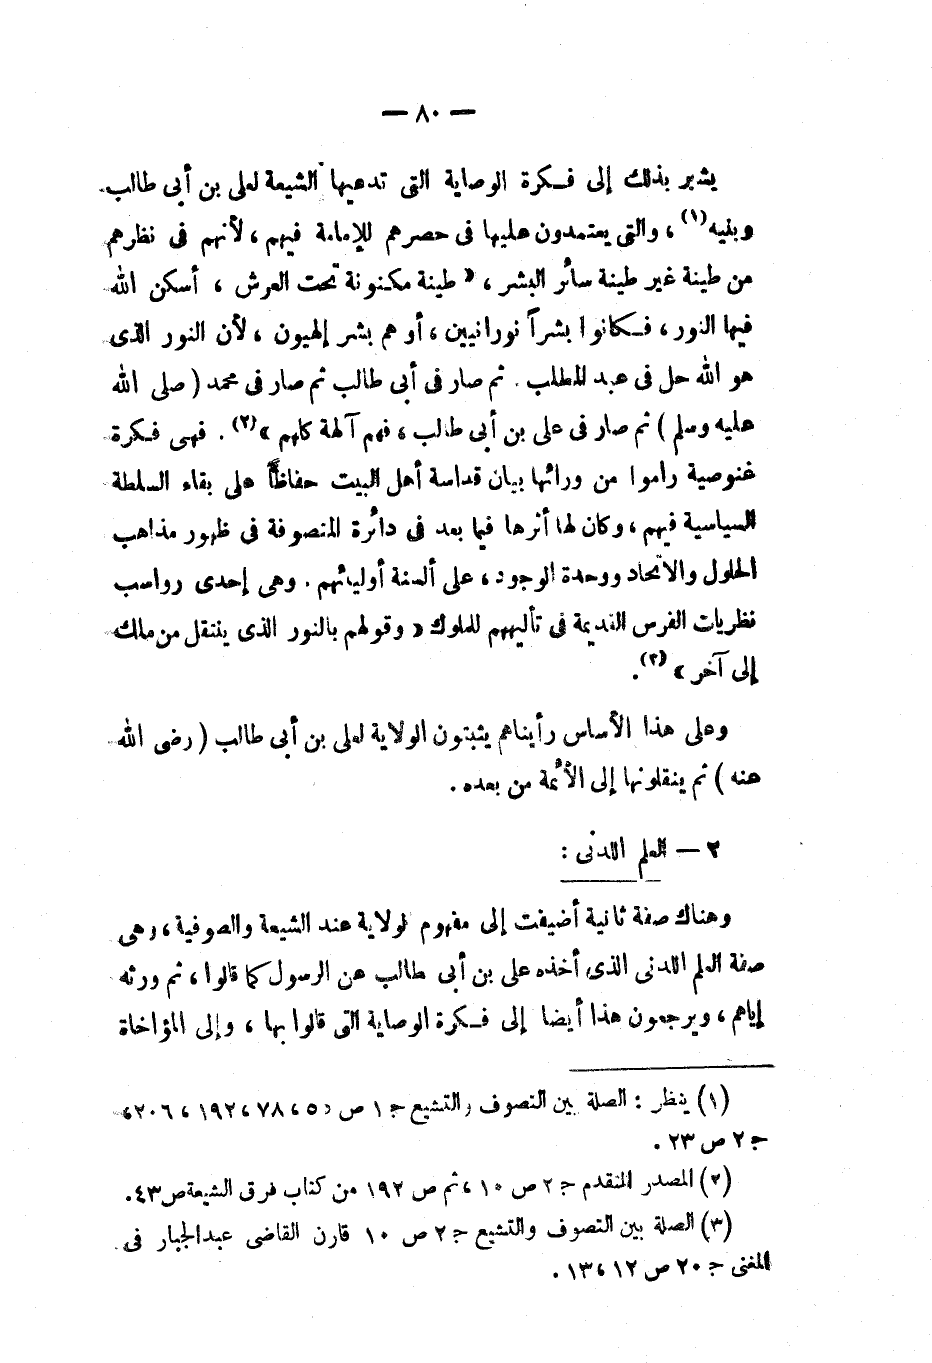 — ٨٠ —
يشير بذلك إلى فكرة الوصاية التى تدعيها الشيعة لعلى بن أبى طالب
وبنيه(١) ، والتى يعتمدون عليها فى حصرهم للإمامة فيهم ، لأنهم فى نظرهم
من طينة غير طينة سائر البشر ، « طينة مكنونة تحت العرش ، أسكن الله
فيها النور ، فكانوا بشراً نورانيين ، أو هم بشر إلهيون ، لأن النور الذى
هو الله حل فى عبد المطلب . ثم صار فى أبى طالب ثم صار فى محمد ( صلى الله
عليه وسلم ) ثم صار فى على بن أبى طالب ، فهم آلهة كلهم »(٢) . فهى فكرة
غنوصية راموا من ورائها بيان قداسة أهل البيت حفاظاً على بقاء السلطة
السياسية فيهم ، وكان لها أثرها فيما بعد فى دائرة المتصوفة فى ظهور مذاهب
الحلول والاتحاد ووحدة الوجود ، على ألسنة أوليائهم . وهى إحدى رواسب
نظريات الفرس القديمة فى تأليههم للملوك « وقولهم بالنور الذى ينتقل من ملك
إلى آخر »(٣) .
وعلى هذا الأساس رأيناهم يثبتون الولاية لعلى بن أبى طالب ( رضى الله
عنه ) ثم ينقلونها إلى الأئمة من بعده .
٢ — العلم اللدنى :
وهناك صفة ثانية أضيفت إلى مفهوم لولاية عند الشيعة والصوفية ، وهى
صفة العلم اللدنى الذى أخذه على بن أبى طالب عن الرسول كما قالوا ، ثم ورثه
إياهم ، ويرجعون هذا أيضا إلى فكرة الوصاية التى قالوا بها ، وإلى المؤاخاة
(١) ينظر : الصلة بين التصوف والتشيع ج ١ ص ، ٧٨ ، ١٩٢ ، ٢٠٦ ،
ج ٢ ص ٢٣ .
(٢) المصدر المتقدم ج ٢ ص ١٠ ، ثم ص ١٩٢ من كتاب فرق الشيعة ص ٤٣ .
(٣) الصلة بين التصوف والتشيع ج ٢ ص ١٠ قارن القاضى عبد الجبار فى
المغنى ج ٢٠ ص ١٢ ، ١٣ .